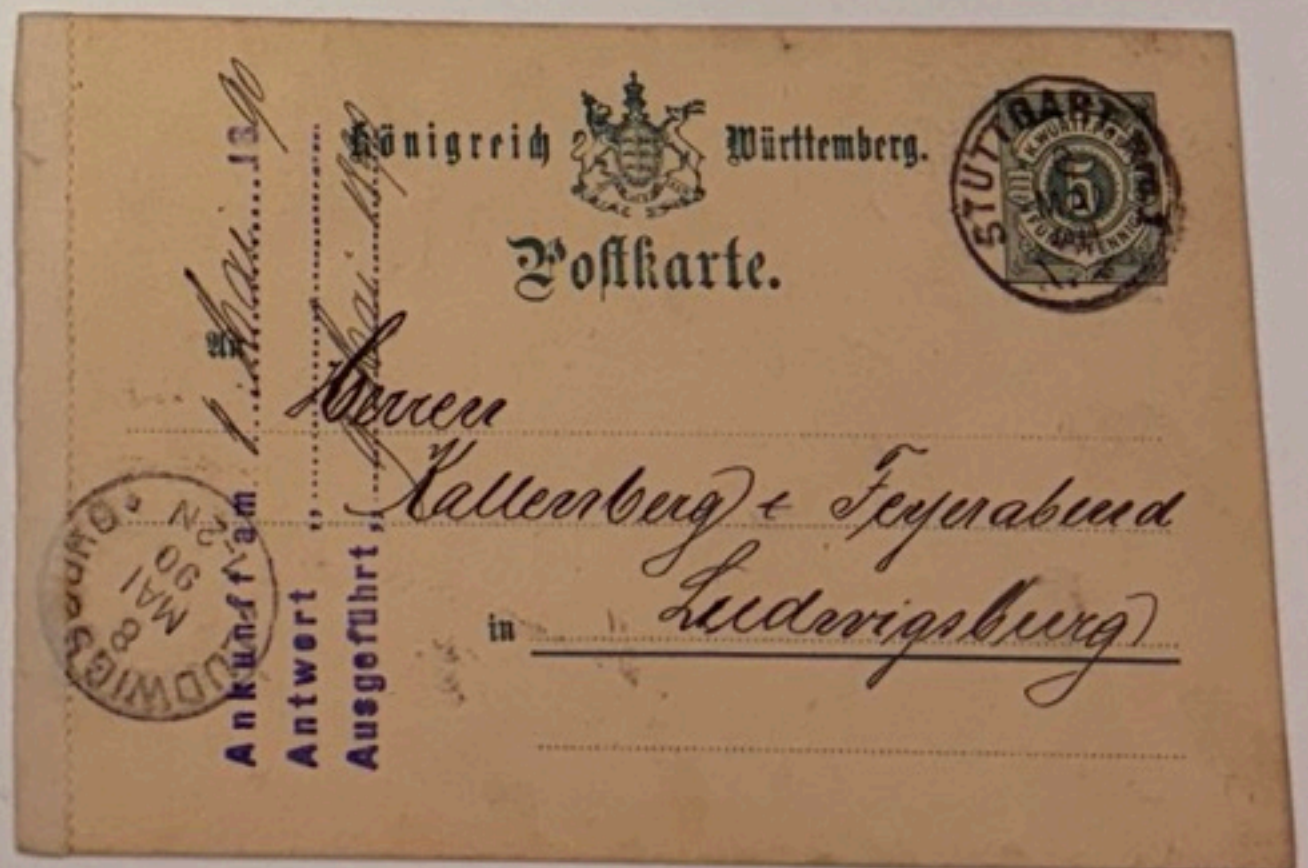 Königreich Württemberg.
Postkarte.
STUTTGART
K. WÜRTT. POST
5
FÜNF PFENNIG
An
Herren
Kallenberg & Feyerabend
in Ludwigsburg
LUDWIGSBURG
8
MAI
90
N
Ankunft am Mai 1890
Antwort "
Ausgeführt " Mai